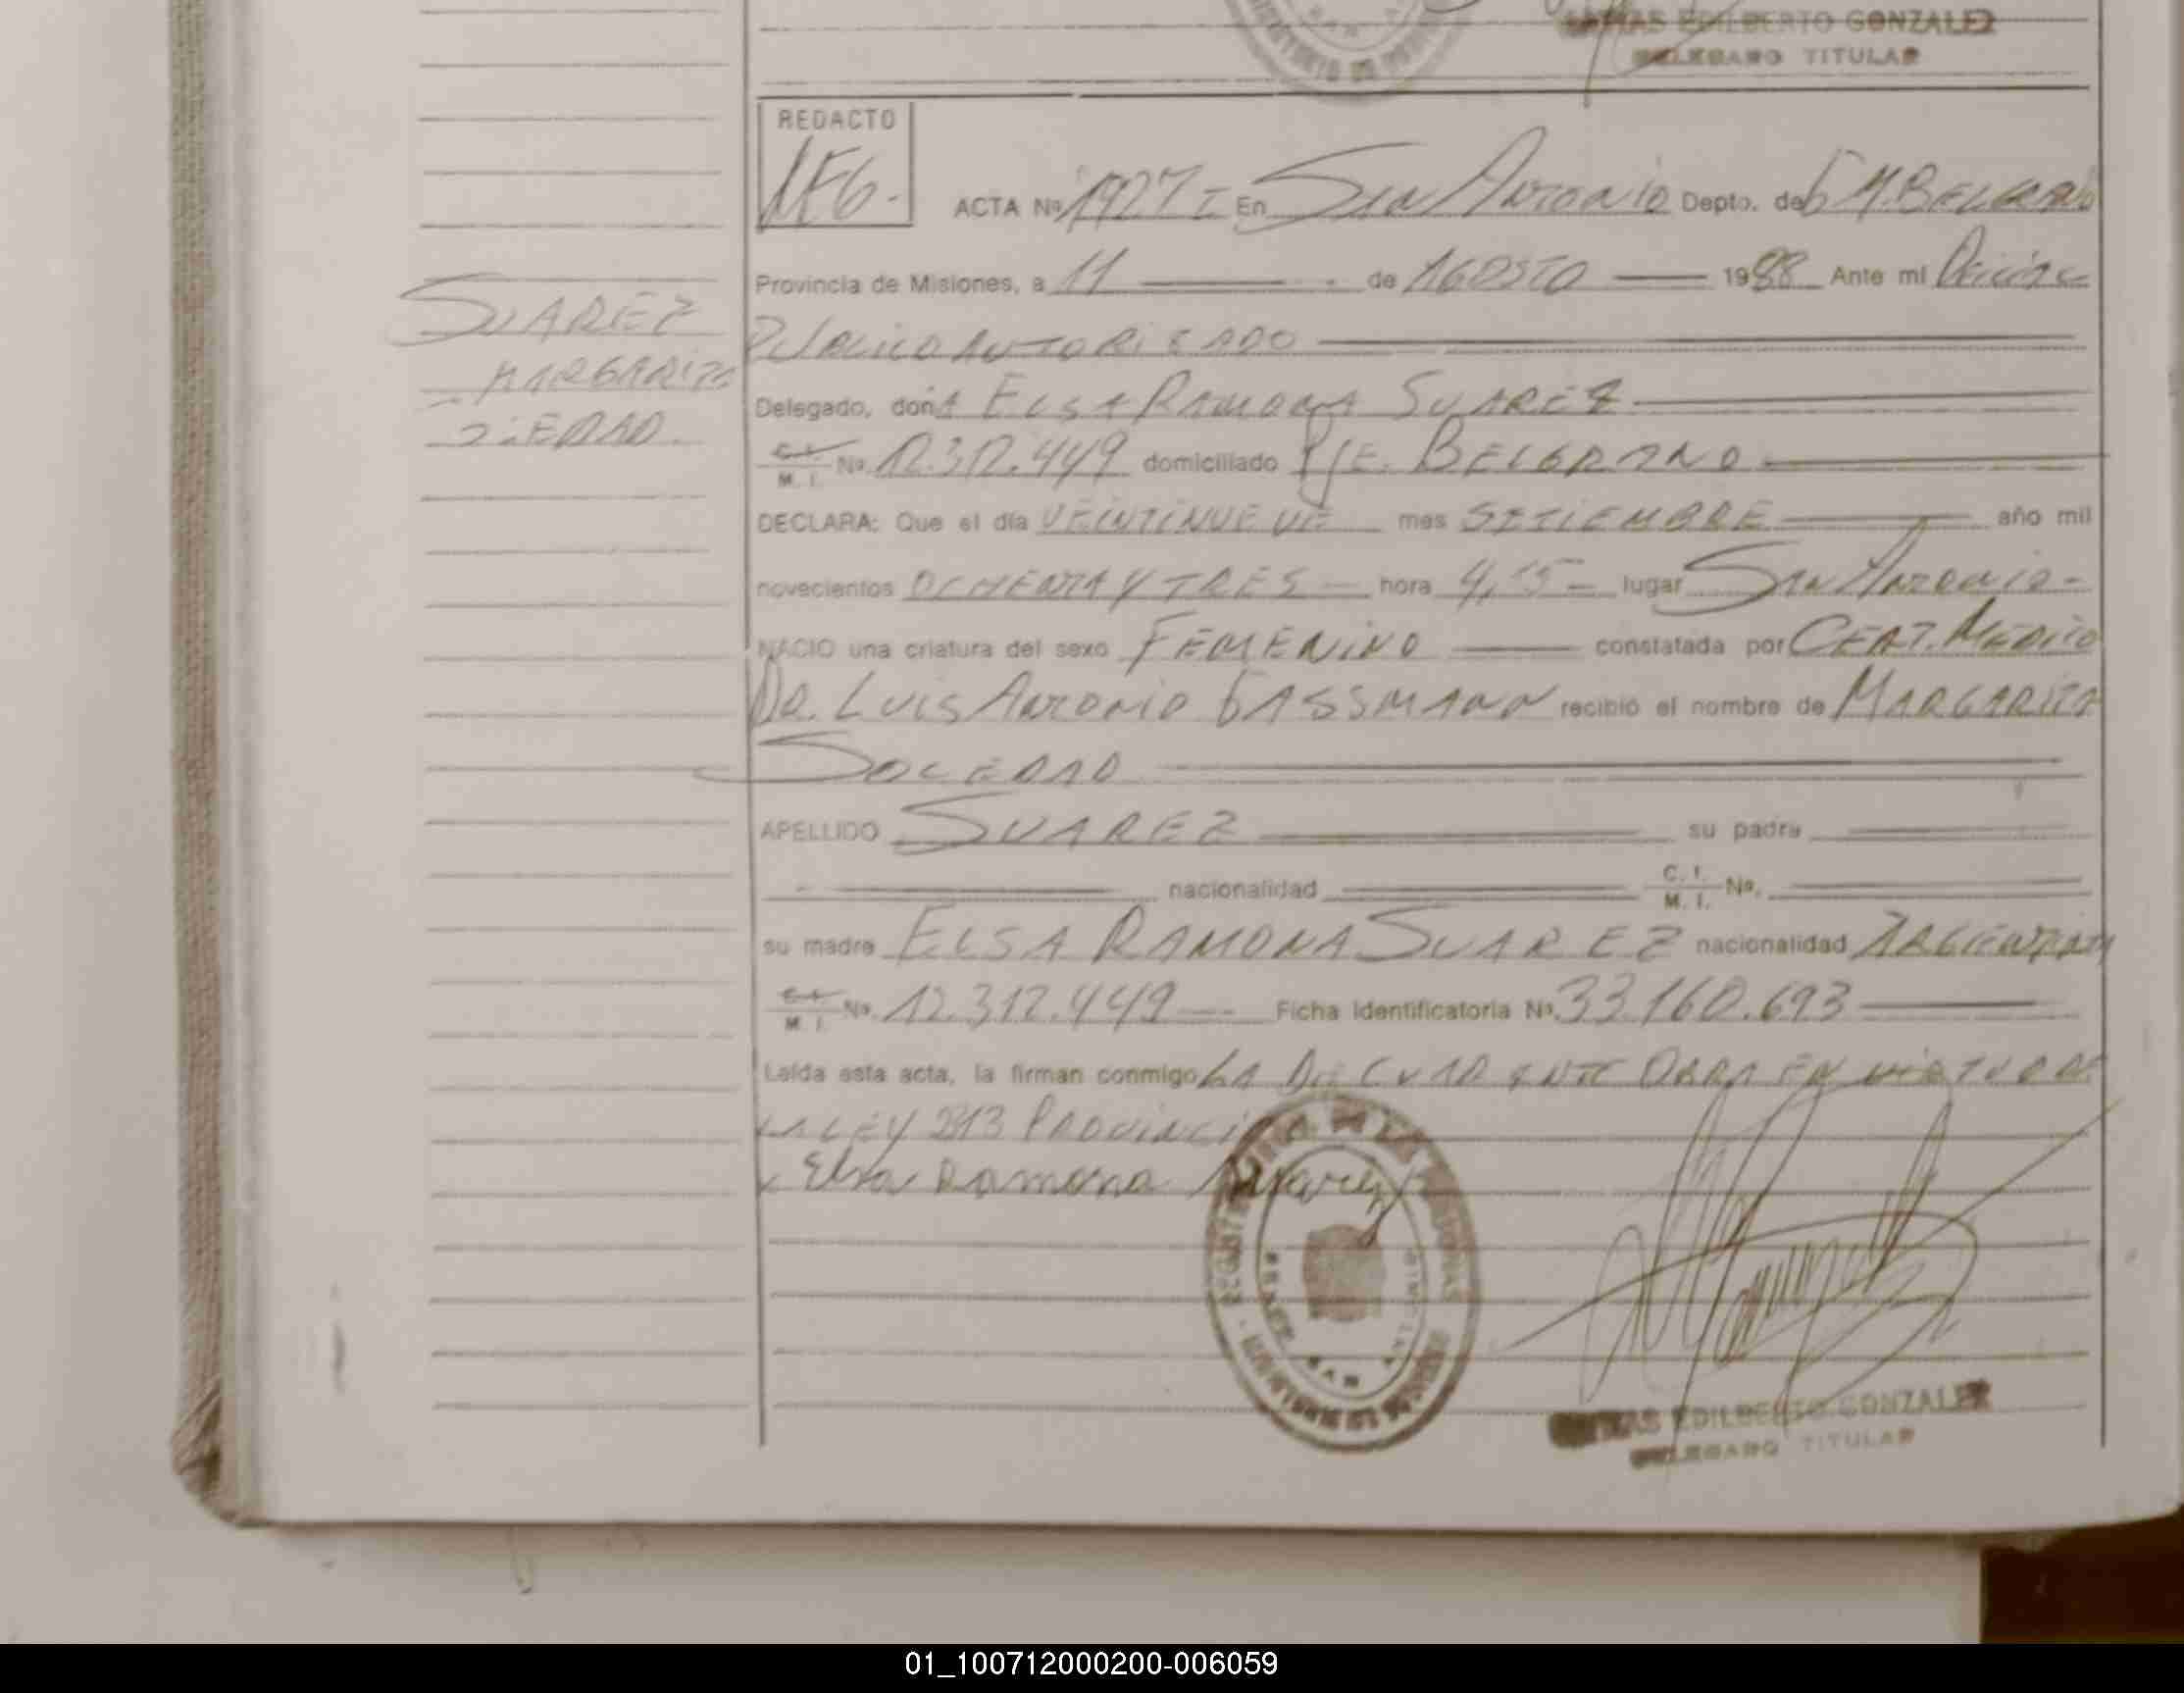 EDILBERTO GONZALEZ
DELEGADO TITULAR
REDACTO
ACTA Nº 1927 I En SAN ANTONIO Depto. de G M. BELGRANO
Provincia de Misiones, a 11 de AGOSTO 1988 Ante mi Oficial
PUBLICO AUTORIZADO
SUAREZ
MARGARITA
Delegado, doña ELSA RAMONA SUAREZ
C. I. / M. I. Nº 12.312.449 domiciliado Pje. BELGRANO
DECLARA: Que el día VEINTINUEVE mes SETIEMBRE año mil
novecientos OCHENTA Y TRES hora 4,15 lugar SAN ANTONIO
NACIO una criatura del sexo FEMENINO constatada por CERT. MEDICO
DR. LUIS ANTONIO GASSMANN recibió el nombre de MARGARITA
SOLEDAD
APELLIDO SUAREZ su padre
nacionalidad C. I. / M. I. Nº.
su madre ELSA RAMONA SUAREZ nacionalidad ARGENTINA
C. I. / M. I. Nº. 12.312.449 Ficha Identificatoria Nº. 33.160.693
Leída esta acta, la firman conmigo LA EN VIRTUD DE
LA LEY
Elsa Ramona Suarez
REGISTRO DE LAS PERSONAS
EDILBERTO GONZALEZ
DELEGADO TITULAR
01_100712000200-006059